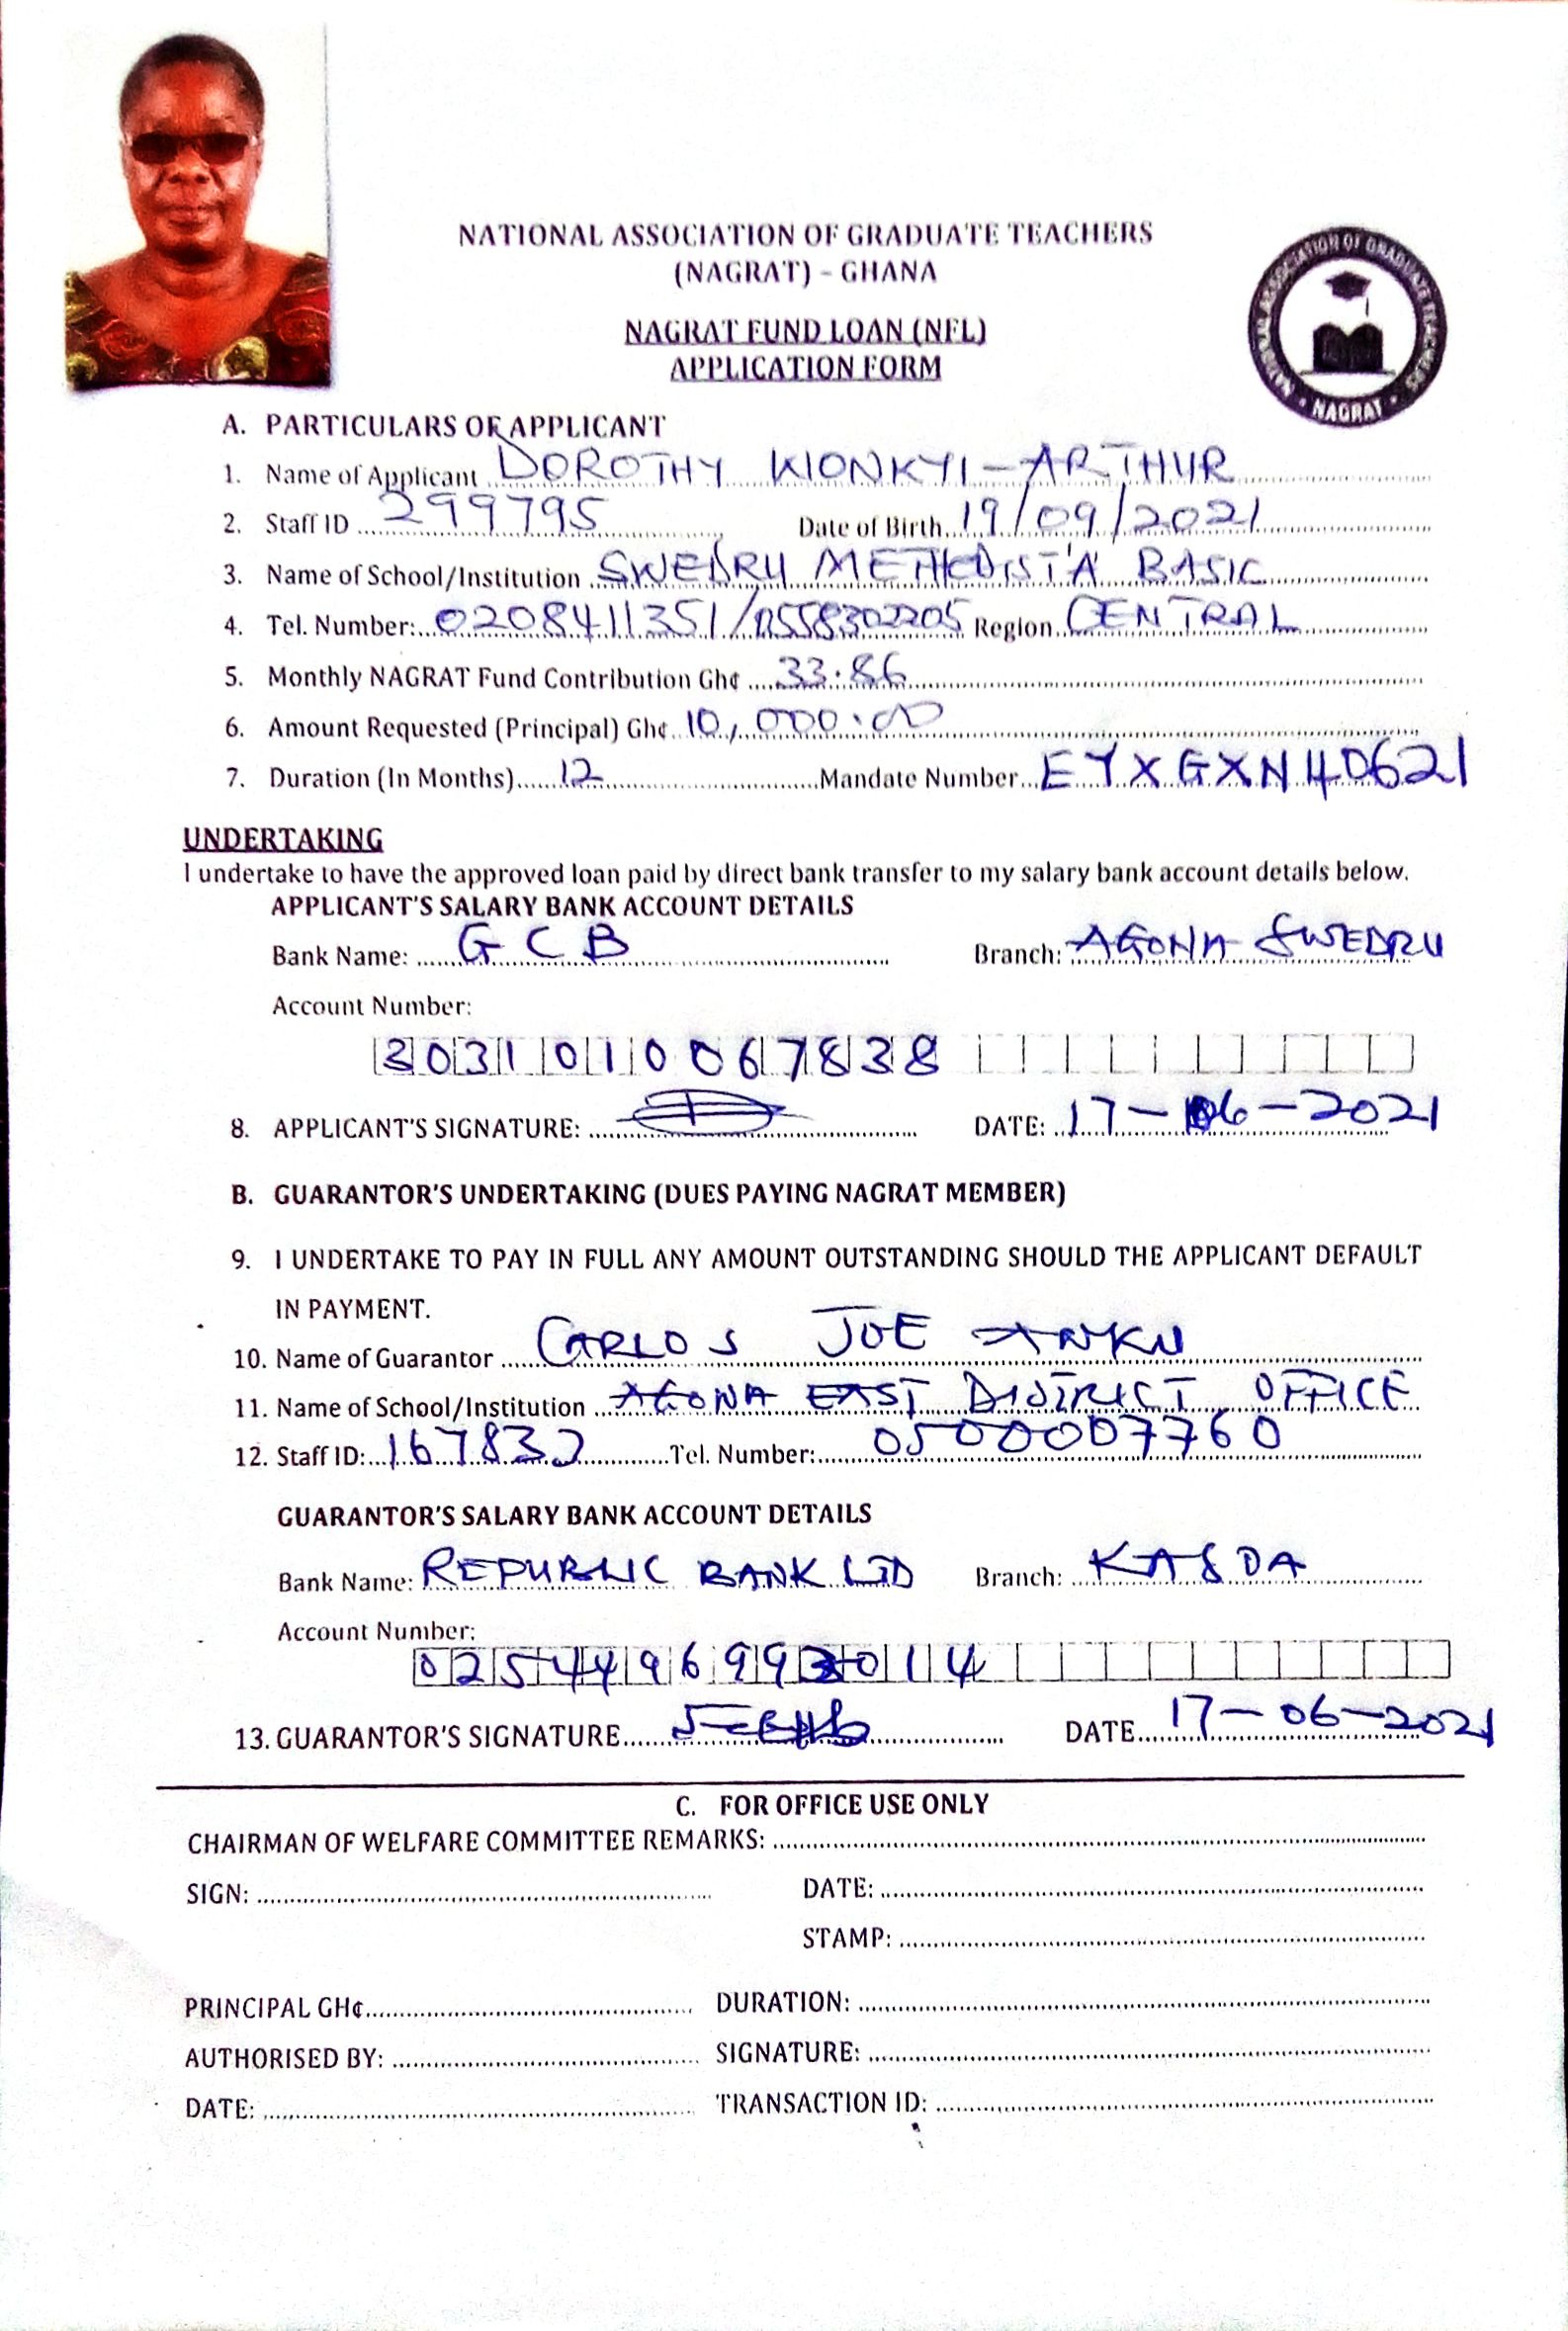 NATIONAL ASSOCIATION OF GRADUATE TEACHERS
(NAGRAT) - GHANA
NAGRAT FUND LOAN (NFL)
APPLICATION FORM
NATIONAL ASSOCIATION OF GRADUATE TEACHERS
• NAGRAT •
A. PARTICULARS OF APPLICANT
1. Name of Applicant DOROTHY KIONKYI-ARTHUR
2. Staff ID 299795 Date of Birth 19/09/2021
3. Name of School/Institution SWEDRU METHODIST 'A' BASIC
4. Tel. Number: 0208411351/0558302205 Region CENTRAL
5. Monthly NAGRAT Fund Contribution Gh¢ 33.86
6. Amount Requested (Principal) Gh¢ 10,000.00
7. Duration (In Months) 12 Mandate Number EYXGXN40621
UNDERTAKING
I undertake to have the approved loan paid by direct bank transfer to my salary bank account details below.
APPLICANT'S SALARY BANK ACCOUNT DETAILS
Bank Name: GCB Branch: AGONA SWEDRU
Account Number:
3031010067838
8. APPLICANT'S SIGNATURE: DATE: 17-06-2021
B. GUARANTOR'S UNDERTAKING (DUES PAYING NAGRAT MEMBER)
9. I UNDERTAKE TO PAY IN FULL ANY AMOUNT OUTSTANDING SHOULD THE APPLICANT DEFAULT
IN PAYMENT.
10. Name of Guarantor CARLOS JOE ANKU
11. Name of School/Institution AGONA EAST DISTRICT OFFICE
12. Staff ID: 167832 Tel. Number: 0500007760
GUARANTOR'S SALARY BANK ACCOUNT DETAILS
Bank Name: REPUBLIC BANK LTD Branch:
Account Number:
13. GUARANTOR'S SIGNATURE DATE 17-06-2021
C. FOR OFFICE USE ONLY
CHAIRMAN OF WELFARE COMMITTEE REMARKS:
SIGN: DATE:
STAMP:
PRINCIPAL GH¢ DURATION:
AUTHORISED BY: SIGNATURE:
DATE: TRANSACTION ID: